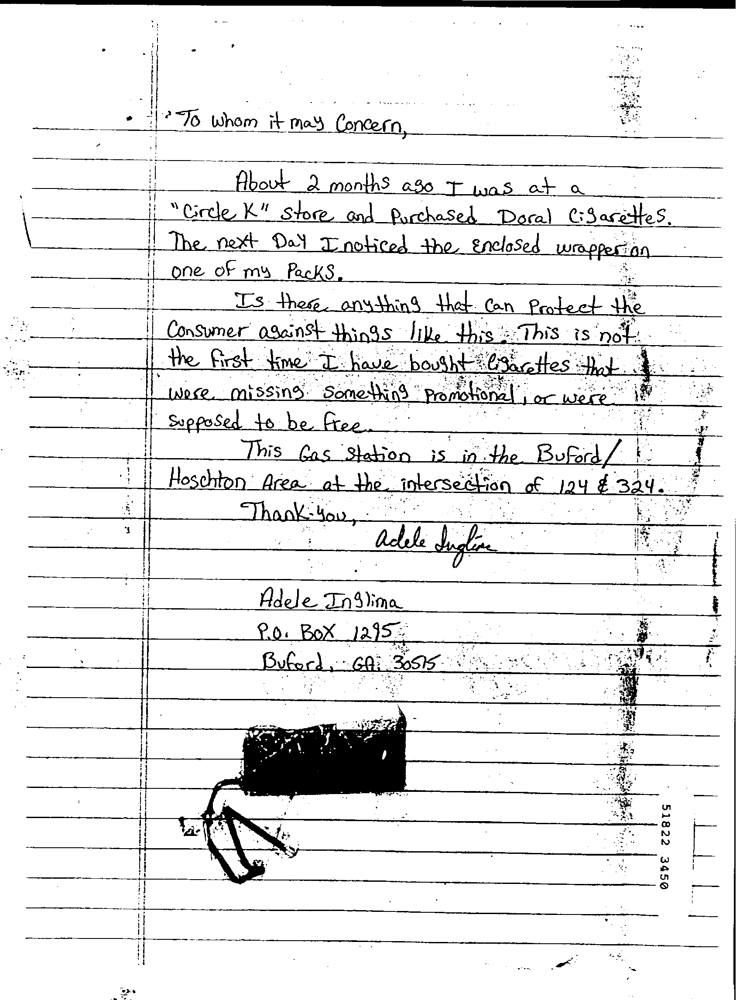 To whom it may Concern,
About 2 months ago I was at a
"Circle K" store and Purchased Doral Cigarettes.
The next Day I noticed the enclosed wrapper on
one of my Packs.
Is there anything that can Protect the
Consumer against things like this. This is not
the first time I have bought Cigarettes that
were missing something promotional, or were
supposed to be free.
This Gas Station is in the Buford/
Hoschton Area at the intersection of 124 & 324.
Thank-you,
Adele Inglima
Adele Inglima
P.O. Box 1295
Buford, GA. 30515
51822 3450